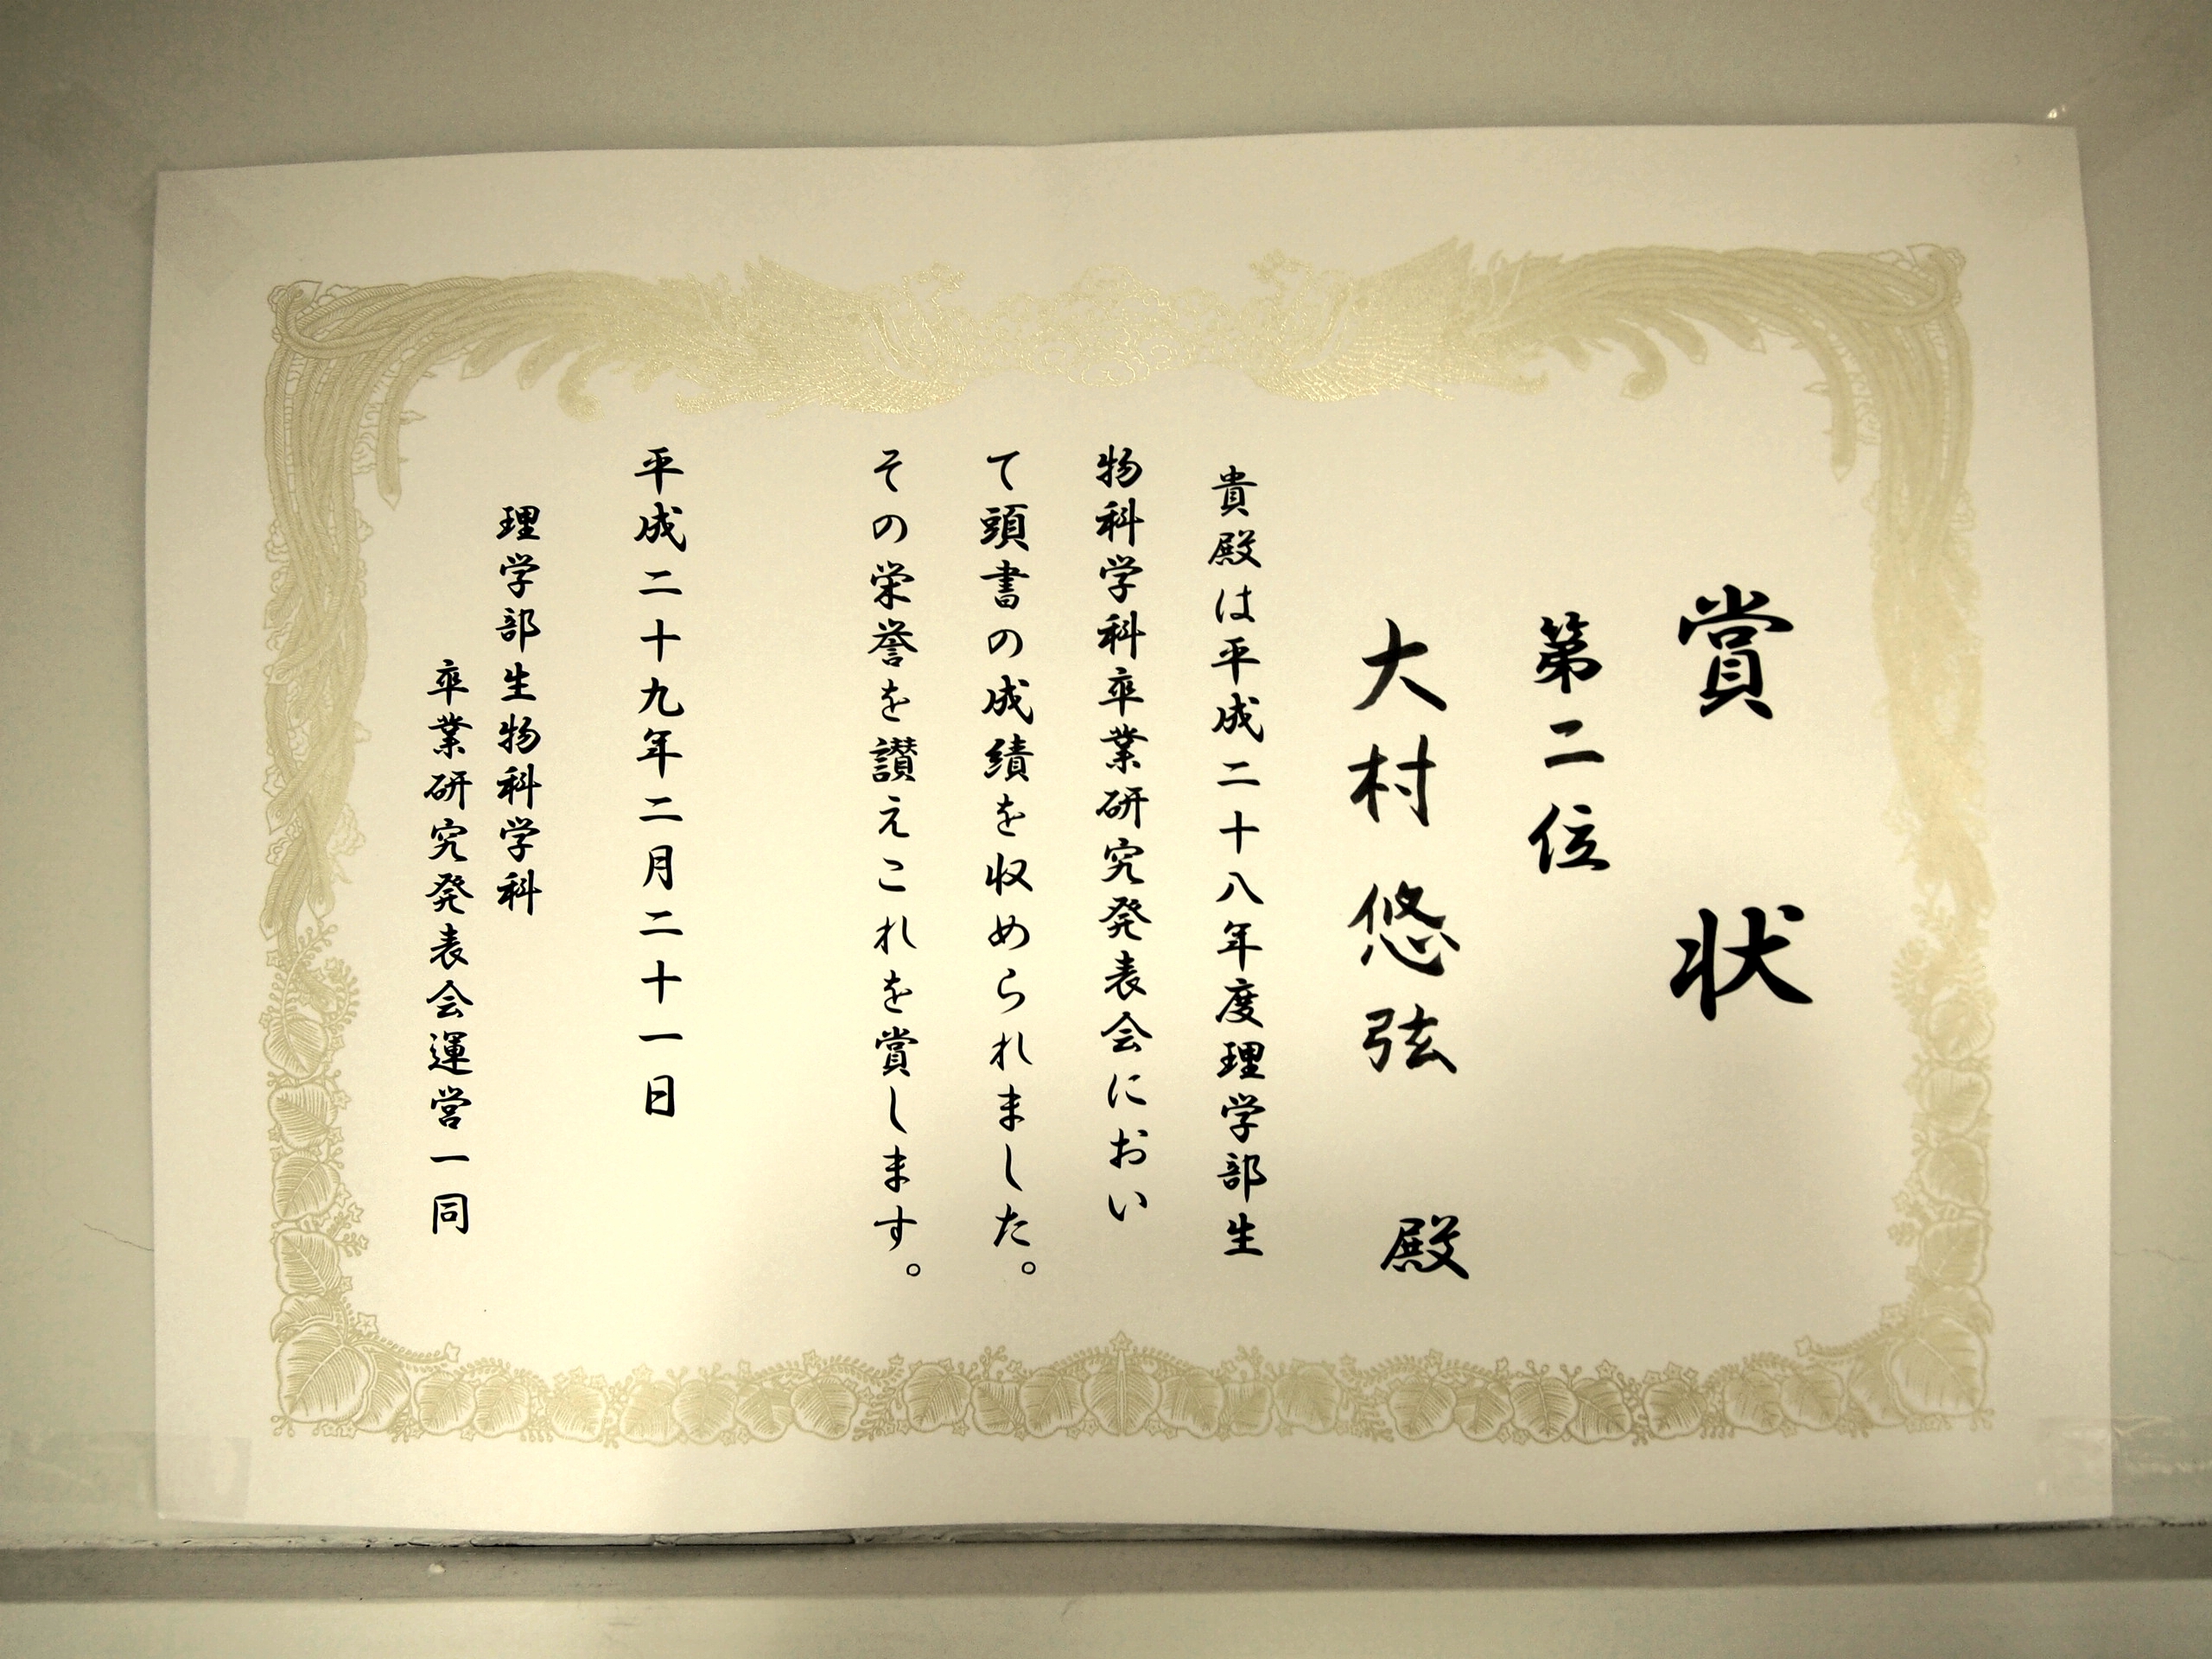 賞状
第二位
大村悠弦 殿
貴殿は平成二十八年度理学部生
物科学科卒業研究発表会におい
て頭書の成績を収められました。
その栄誉を讃えこれを賞します。
平成二十九年二月二十一日
理学部生物科学科
卒業研究発表会運営一同